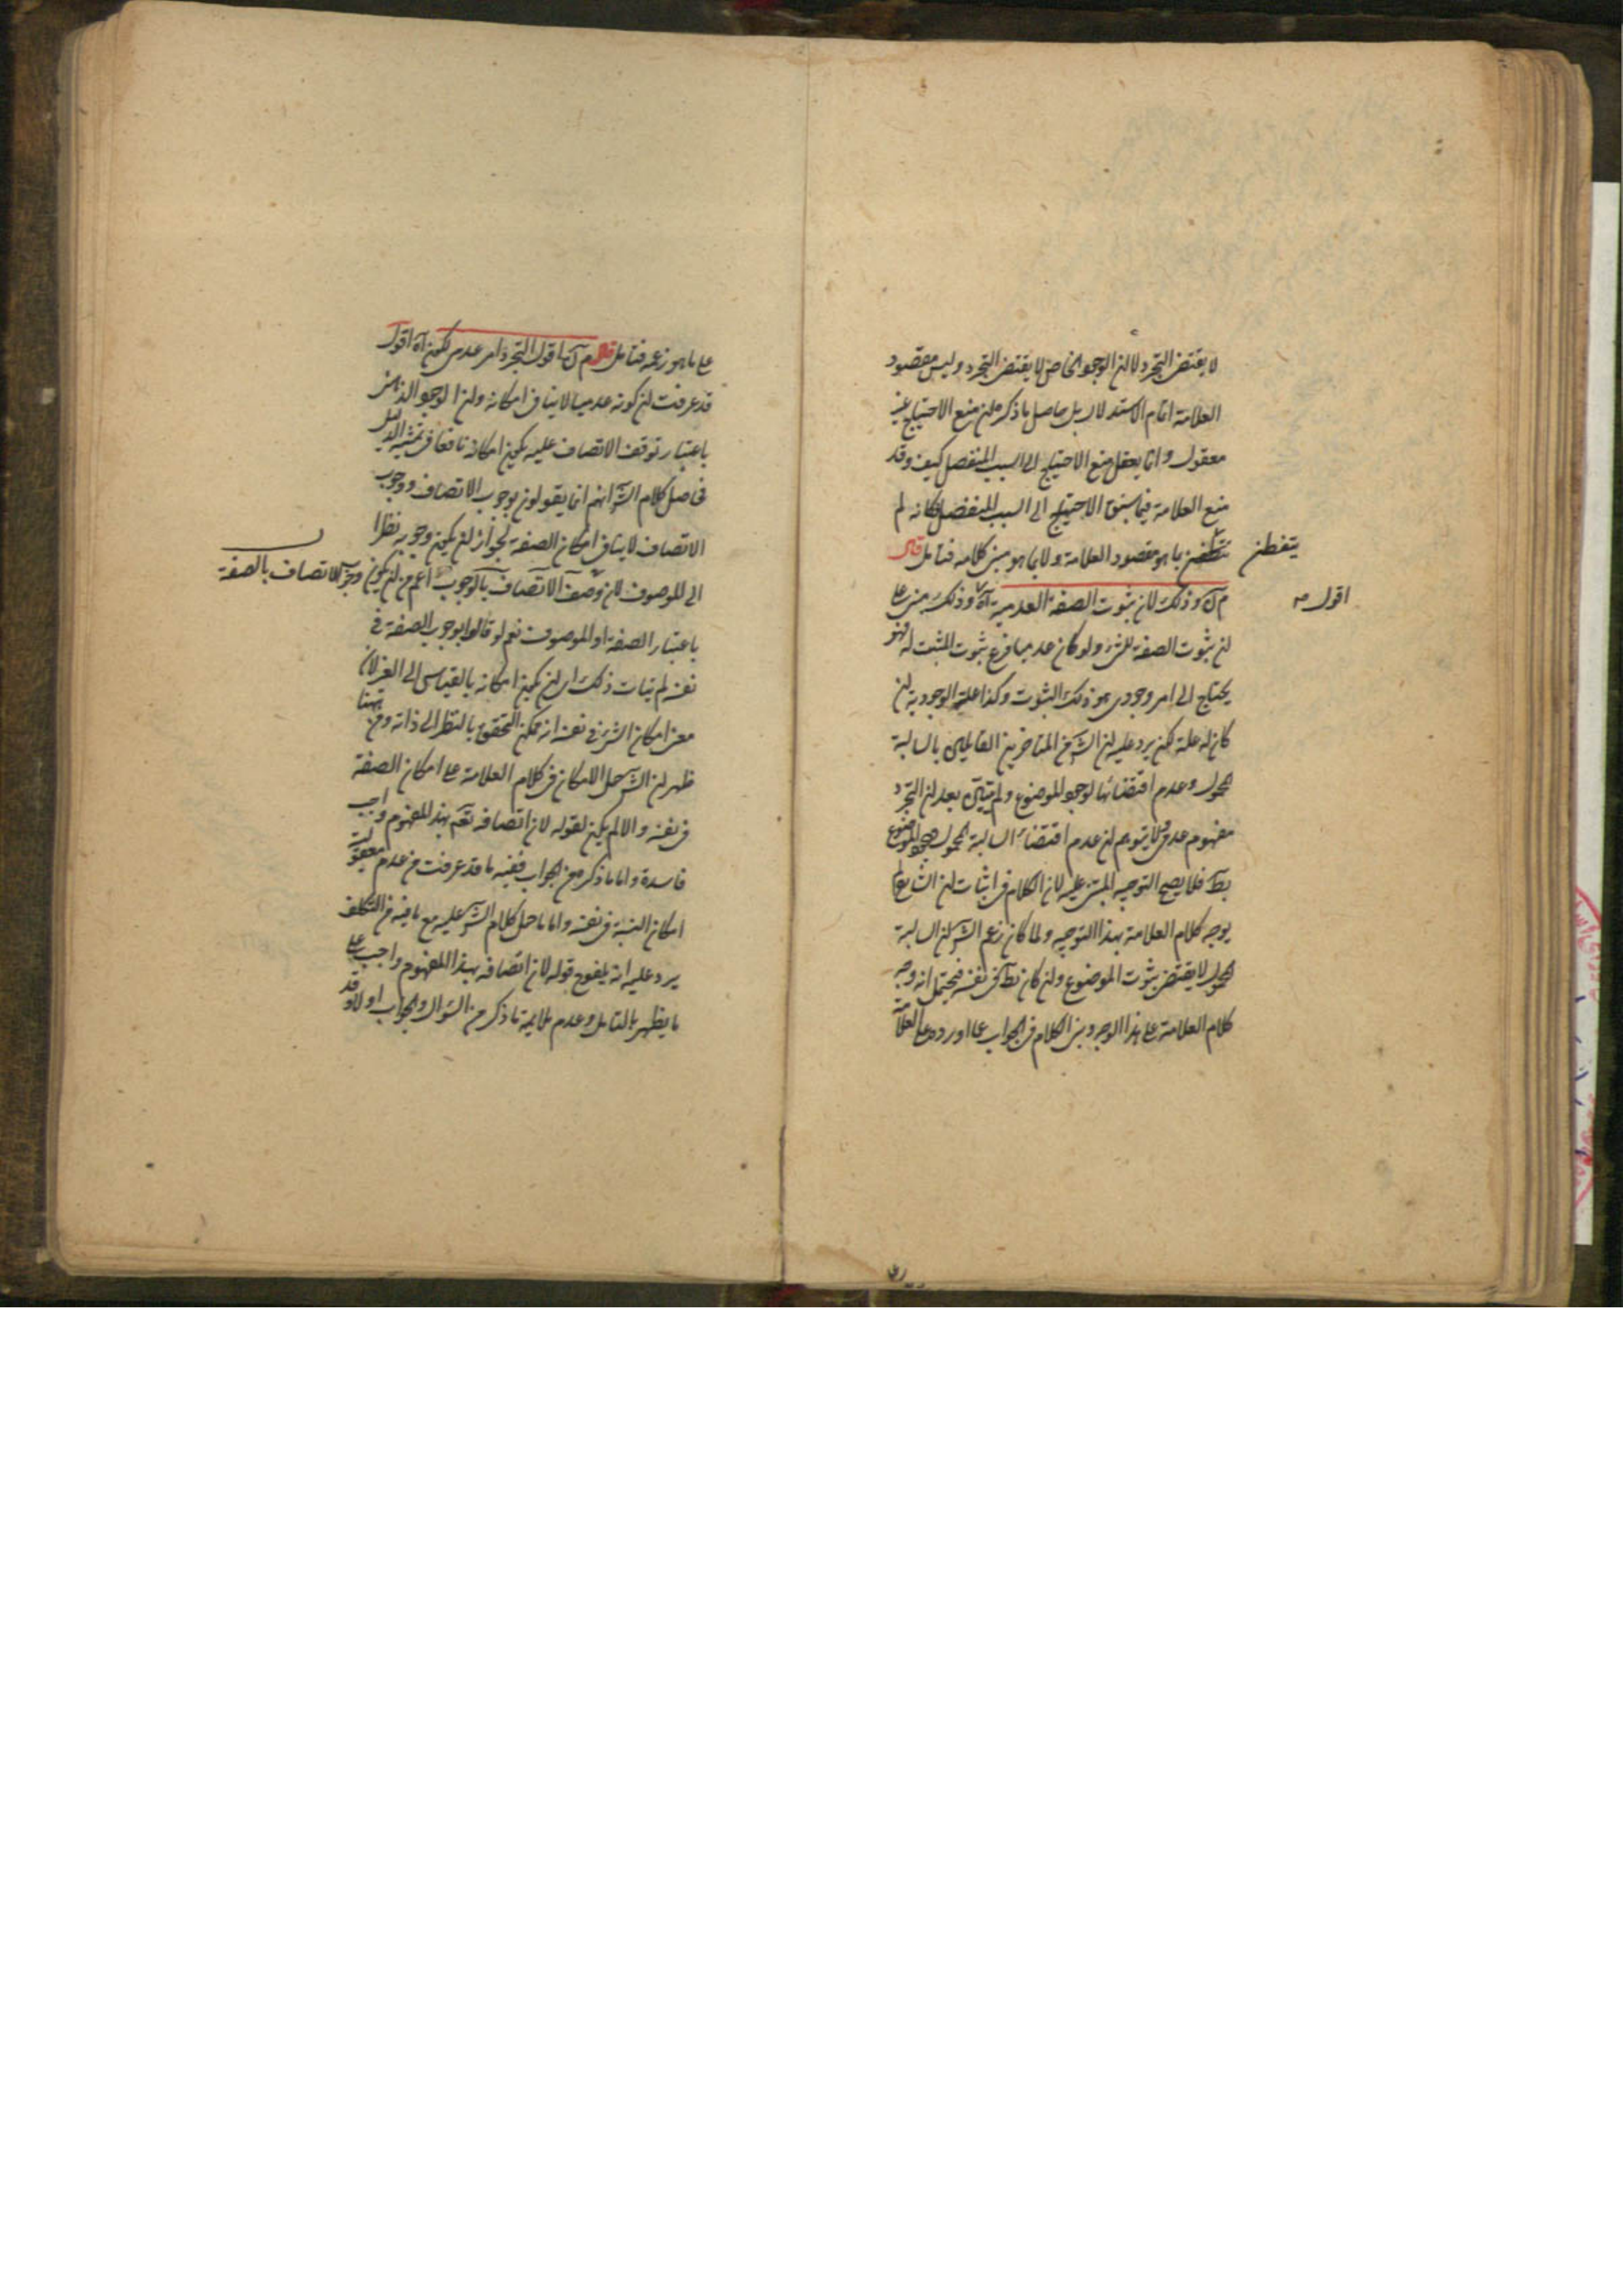 لا يقتضى التجرد لا لان الوجود الخاص لا يقتضى التجرد وليس مقصود
العلامة اتمام الاستدلال بل حاصل ما ذكره ان منع الاحتياج غير
معقول وانما يعقل منع الاحتياج الى السبب المنفصل كيف وقد
منع العلامة فيما سبق الاحتياج الى السبب المنفصل فكانه لم
يتفطن
بما هو مقصود العلامة ولا بما هو مبنى كلامه فتامل قال
اقول
وذلك لان ثبوت الصفة العدمية آه وذلك مبنى على
ان ثبوت الصفة للشئ ولو كان عدميا فرع ثبوت المثبت له فهو
يحتاج الى امر وجودى هو ذلك الثبوت وكذا علية الوجودية ان
كان له علة لكن يرد عليه ان الش من المتاخرين القائلين بالسالبة
المحمول وعدم اقتضائها لوجود الموضوع ولم يتبين بعد ان التجرد
مفهوم عدولى لا يتوهم ان عدم اقتضاء السالبة المحمول وجود الموضوع
بط فلا يصح التوجيه المبنى عليه لان الكلام فى اثبات ان الشارح لم
يوجه كلام العلامة بهذا التوجيه ولما كان زعم الش ان السالبة
المحمول لا يقتضى ثبوت الموضوع وان كان بط فى نفسه فيحتمل انه وجه
كلام العلامة على هذا الوجه وبنى الكلام فى الجواب عما اورده على العلامة
على ما هو زعمه فتامل قال اقول التجرد امر عدمى لكونه آه اقول
قد عرفت ان كونه عدميا لا ينافى امكانه وان الوجود الذهنى
باعتبار توقف الاتصاف عليه يكون امكانه نافعا فى تمشية الدليل
فحاصل كلام الش انهم انما يقولون بوجوب الاتصاف ووجوب
الاتصاف لا ينافى امكان الصفة لجواز ان يكون وجوبه نظرا
الى الموصوف لان وصف الاتصاف بالوجوب اعم من ان يكون وجوب الاتصاف بالصفة
باعتبار الصفة او الموصوف نعم لو قالوا بوجوب الصفة فى
نفسه لم يتات ذلك اى ان يكون امكانه بالقياس الى الغير لان
معنى امكان الشئ فى نفسه انه ممكن التحقق بالنظر الى ذاته ومن
ههنا
ظهر ان الش حمل الامكان فى كلام العلامة على امكان الصفة
فى نفسه والا لم يكن لقوله لان اتصافه تعم بهذا المفهوم واجب
فاسدة واما ما ذكر من الجواب ففيه ما قد عرفت من عدم معقولية
امكان النسبة فى نفسه واما ما حمل كلام الش عليه مع ما فيه من التكلف
يرد عليه انه يلغوح قوله لان اتصافه بهذا المفهوم واجب على
ما يظهر بالتامل وعدم ملايمة ما ذكر من السؤال والجواب اولا وقد